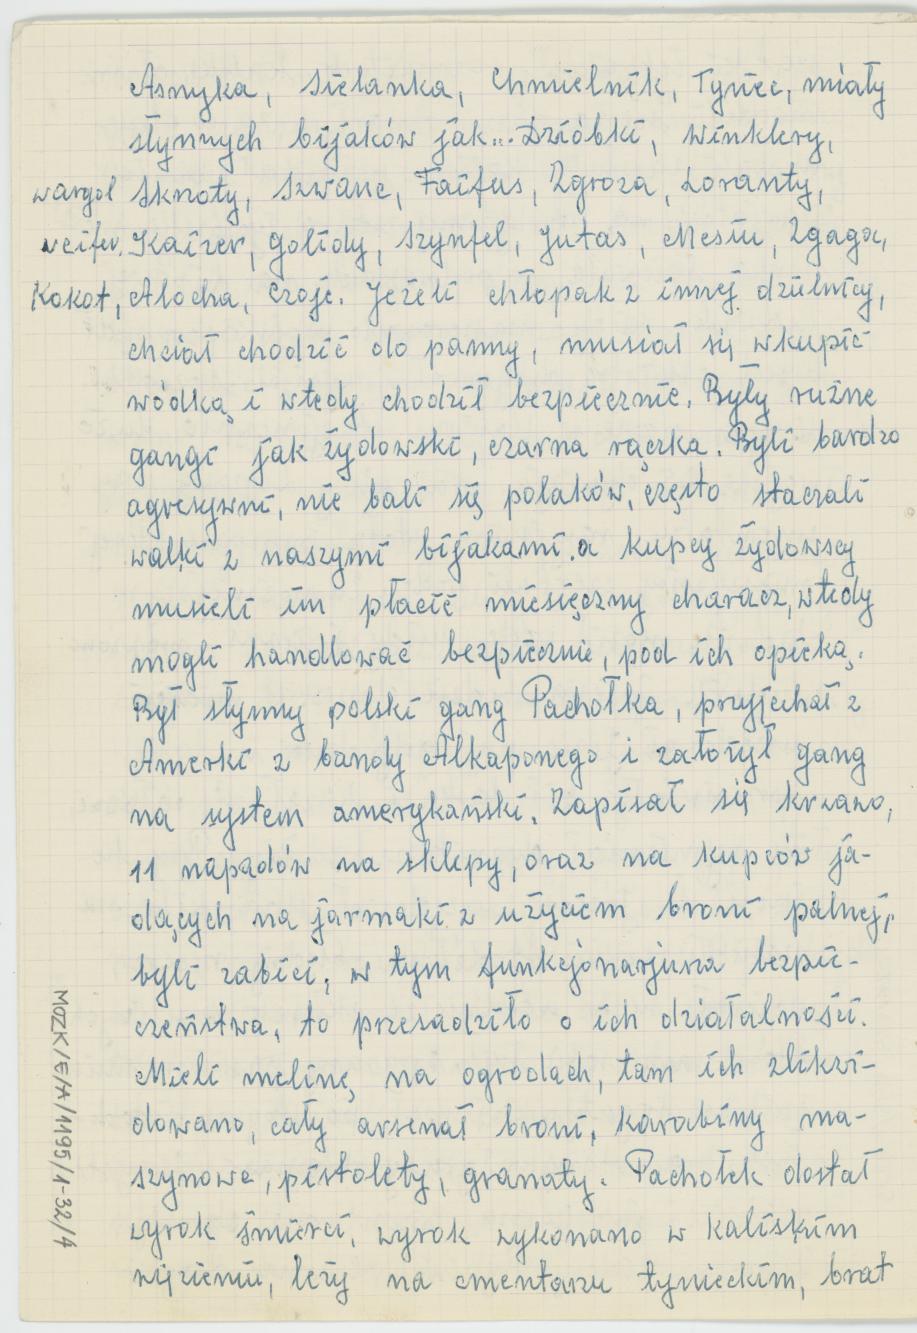 Asnyka, Sielanka, Chmielnik, Tyniec, miały
słynnych bijaków jak... Dzióbki, Winklery,
wargol Sknoty, Szwanc, Faifus, Zgroza, Loranty,
weifer, Kaizer, Golidy, Szynfel, Jutas, Mesiu, Zgaga,
Kokot, Alocha, Czoje. Jeżeli chłopak z innej dzielnicy,
chciał chodzić do panny, musiał się wkupić
wódką i wtedy chodził bezpiecznie. Były rużne
gangi jak żydowski, czarna rączka. Byli bardzo
agresywni, nie bali się polaków, często staczali
walki z naszymi bijakami. a kupcy żydowscy
musieli im płacić miesięczny characz, wtedy
mogli handlować bezpiecznie, pod ich opieką.
Był słynny polski gang Pachołka, przyjechał z
Amerki z bandy Alkaponego i założył gang
na system amerykański. Zapisał się krwawo,
11 napadów na sklepy, oraz na kupców ja-
dących na jarmaki z użyciem broni palnej,
byli zabici, w tym funkcjonarjusza bezpie-
czeństwa, to przesadziło o ich działalności.
Mieli melinę na ogrodach, tam ich zlikwi-
dowano, cały arsenał broni, karabiny ma-
szynowe, pistolety, granaty. Pachołek dostał
wyrok śmierci, wyrok wykonano w Kaliskim
więzieniu, leży na cmentarzu tynieckim, brat
MOZK/E/A/1195/1-32/4